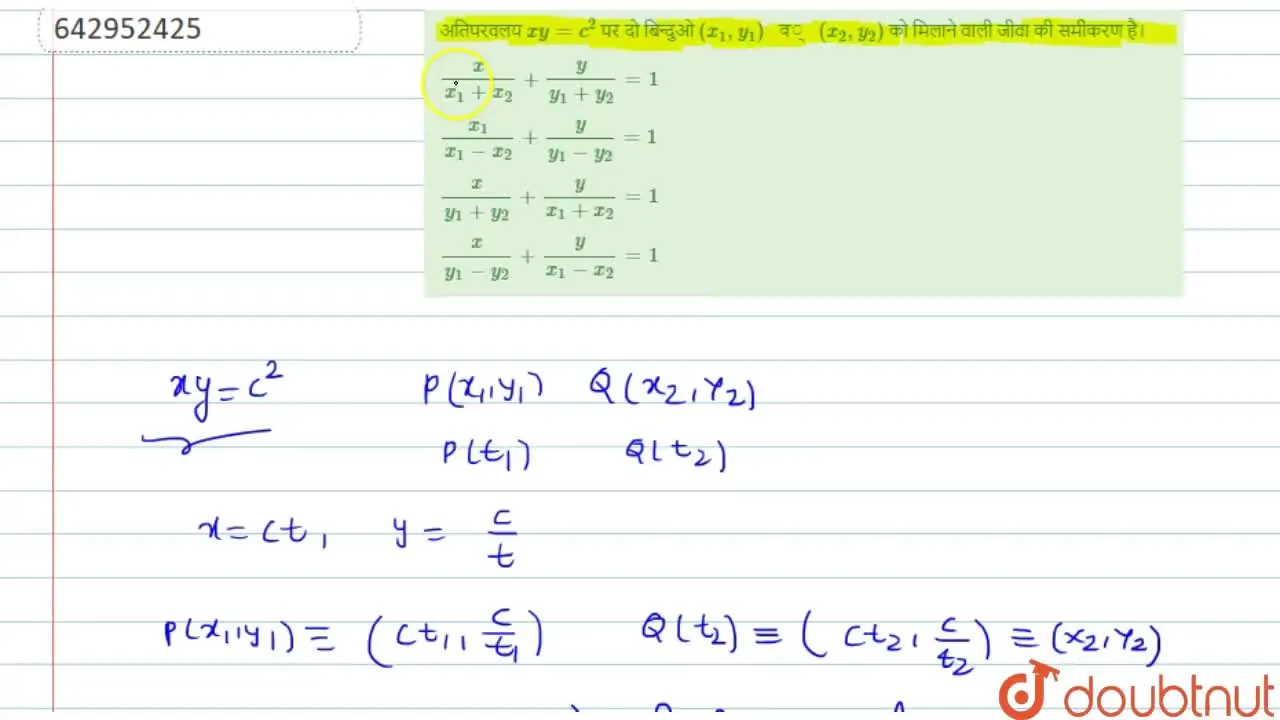 642952425
अतिपरवलय xy = c² पर दो बिन्दुओ (x₁, y₁) व (x₂, y₂) को मिलाने वाली जीवा की समीकरण है।
x/(x₁ + x₂) + y/(y₁ + y₂) = 1
x₁/(x₁ − x₂) + y/(y₁ − y₂) = 1
x/(y₁ + y₂) + y/(x₁ + x₂) = 1
x/(y₁ − y₂) + y/(x₁ − x₂) = 1
xy = c² P(x₁, y₁) Q(x₂, y₂)
P(t₁) Q(t₂)
x = ct, y = c/t
P(x₁, y₁) ≡ (ct₁, c/t₁) Q(t₂) ≡ (ct₂, c/t₂) ≡ (x₂, y₂)
doubtnut